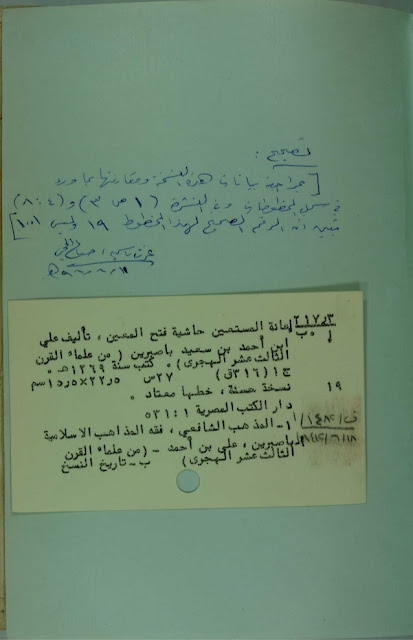 تصحيح :
[ بمراجعة بيانات هذه النسخة ومقارنتها بما ورد
في سجل المخطوطات وفي النشرة ( ١ ص ٣ ) و ( ٨:٤ )
تبين ان الرقم الصحيح لهذا المخطوط ١٩ وليس ١٠١ ]
٢١٧٫٣ اعانة المستعين حاشية فتح المعين ، تأليف علي
ا٠ب ابن أحمد بن سعيد باصبرين ( من علماء القرن
الثالث عشر الهجرى ) ٠ كتب سنة ١٢٦٩هـ ٠
ج١ (٣١٦ق) ٢٧س ٢٢٫٥×١٥٫٥سم
١٩ نسخة حسنة ، خطها معتاد ٠
دار الكتب المصرية ١ : ٥٣١
ف/١٤٨٢/١
١ـ المذهب الشافعي ، فقه المذاهب الاسلامية
أ ـ باصبرين ، علي بن أحمد ـ ( من علماء القرن
الثالث عشر الهجرى ) ب ـ تاريخ النسخ